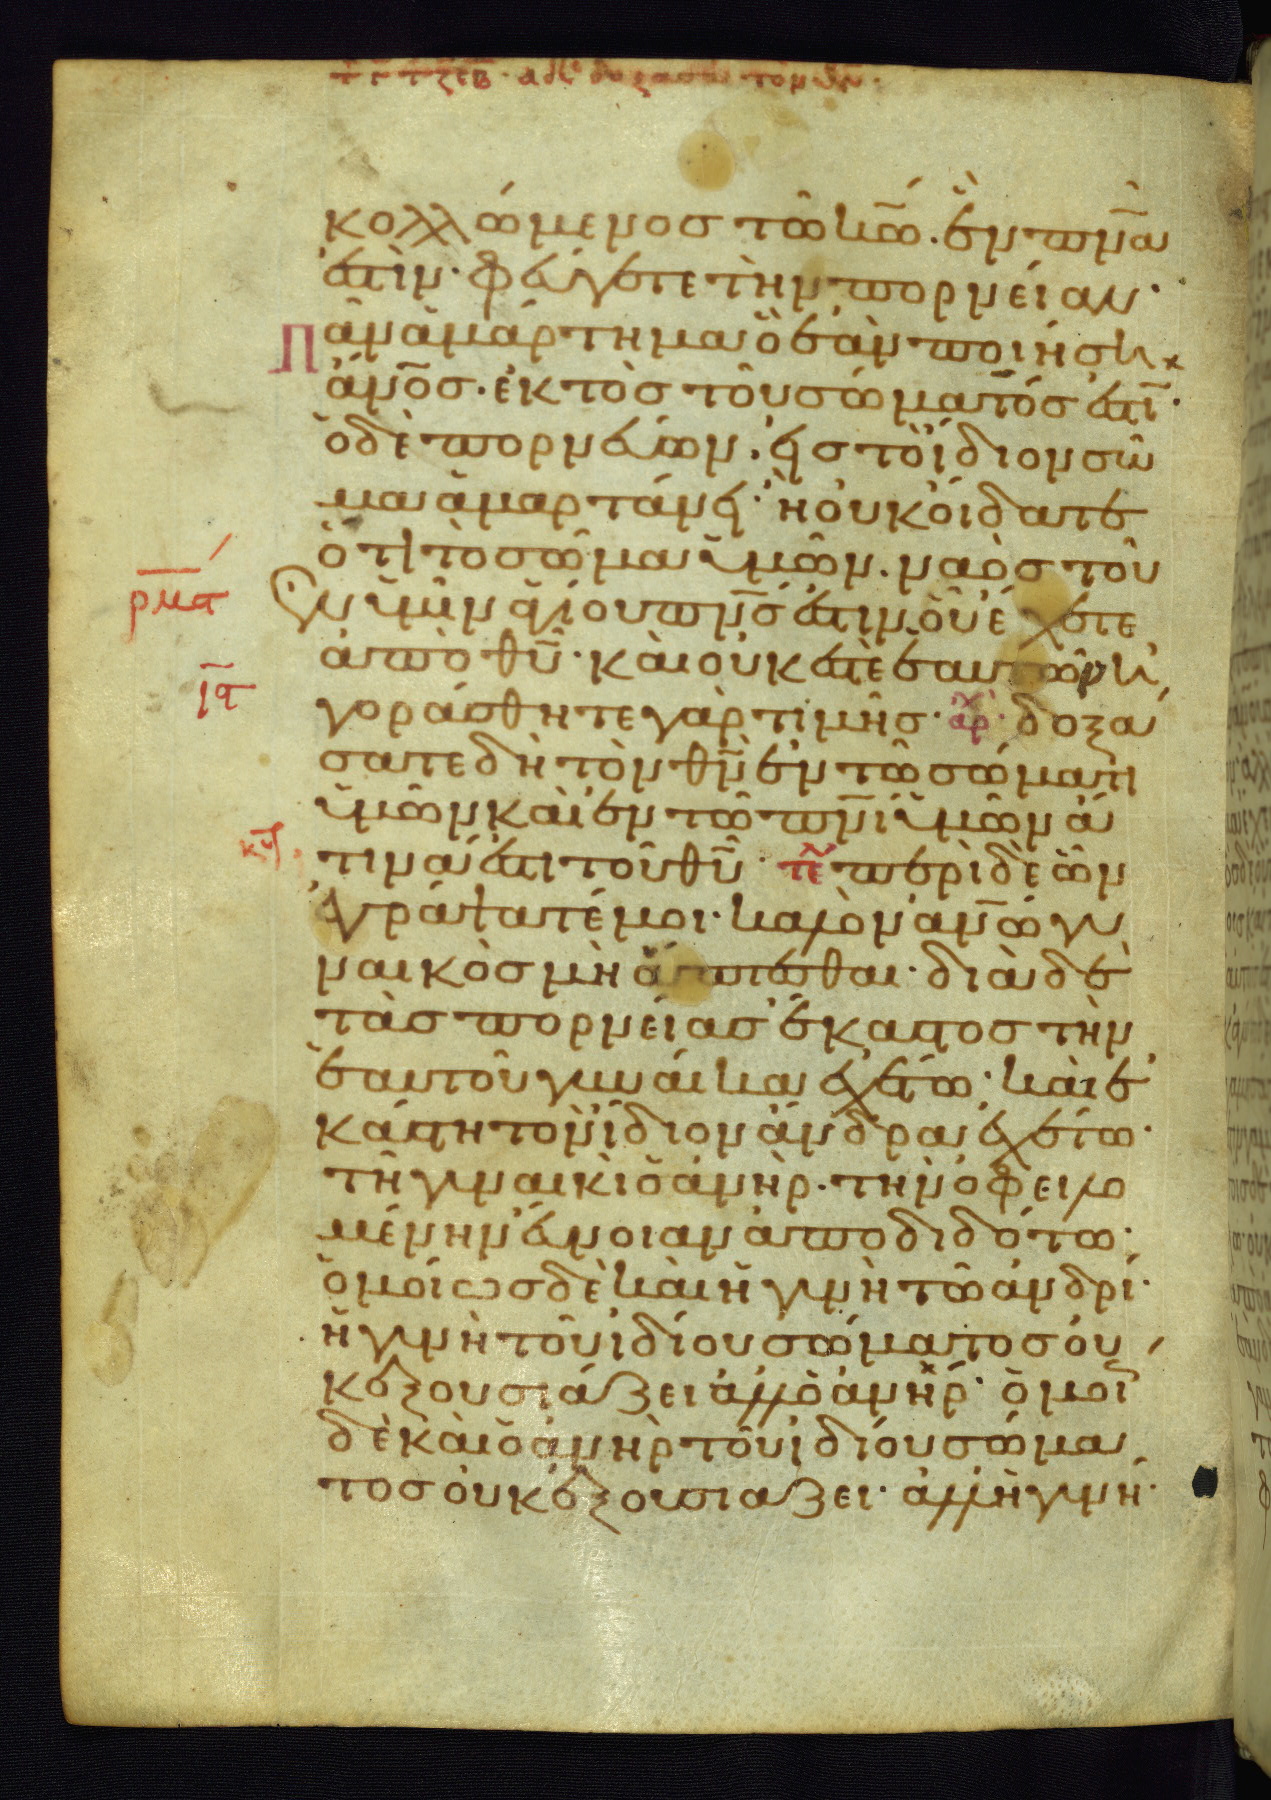 κολλώμενος τῶ κῶ. ἓν πνᾶ
ἐστὶν· φεύγετε τὴν πορνείαν·
Πᾶν ἁμάρτημα ὃ ἐὰν ποιήση
ἄνος· ἐκτὸς τοῦ σώματός ἐστι·
ὁ δὲ πορνεύων. εἰς τὸ ἴδιον σῶ
μα ἁμαρτάνει· ἢ οὐκ οἴδατε
ὅτι τὸ σῶμα ὑμῶν. ναὸς τοῦ
ἐν ὑμῖν ἁγίου πνς ἐστιν οὗ ἔχετε
ἀπὸ θυ· καὶ οὐκ ἐστὲ ἑαυτῶν ἠ
γοράσθητε γὰρ τιμῆς· ἀρχ· δοξά
σατε δὴ τὸν θν ἐν τῶ σώματι
ὑμῶν καὶ ἐν τῶ πνι ὑμῶν ἅ
τινά ἐστι τοῦ θυ· τε περὶ δὲ ὧν
ἐγράψατέ μοι· καλὸν ἀνω γυ
ναικὸς μὴ ἅπτεσθαι· διὰ δὲ
τὰς πορνείας ἕκαστος τὴν
ἑαυτοῦ γυναίκα ἐχέτω· καὶ ἑ
κάστη τὸν ἴδιον ἄνδρα ἐχέτω·
τῆ γυναικὶ ὁ ἀνὴρ. τὴν ὀφειλο
μένην εὔνοιαν ἀποδιδότω·
ὁμοίως δὲ καὶ ἡ γυνὴ τῶ ἀνδρί·
ἡ γυνὴ τοῦ ἰδίου σώματος οὐ
κ ἐξουσιάζει ἀλλὸ ἀνήρ· ὁμοί
δὲ καὶ ὁ ἀνὴρ τοῦ ἰδίου σώμα
τος οὐκ ἐξουσιάζει· ἀλλὴ γυνή·
ρμα
ια